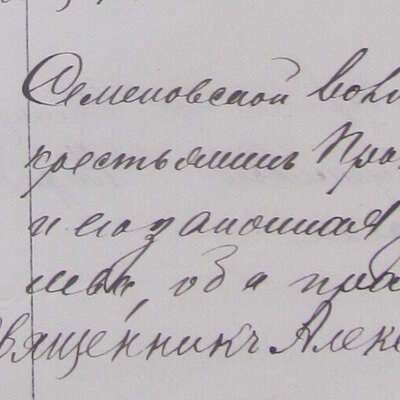 Семеновской вол
крестьянинъ Про
и его законная
оба пра
Священникъ Алекс